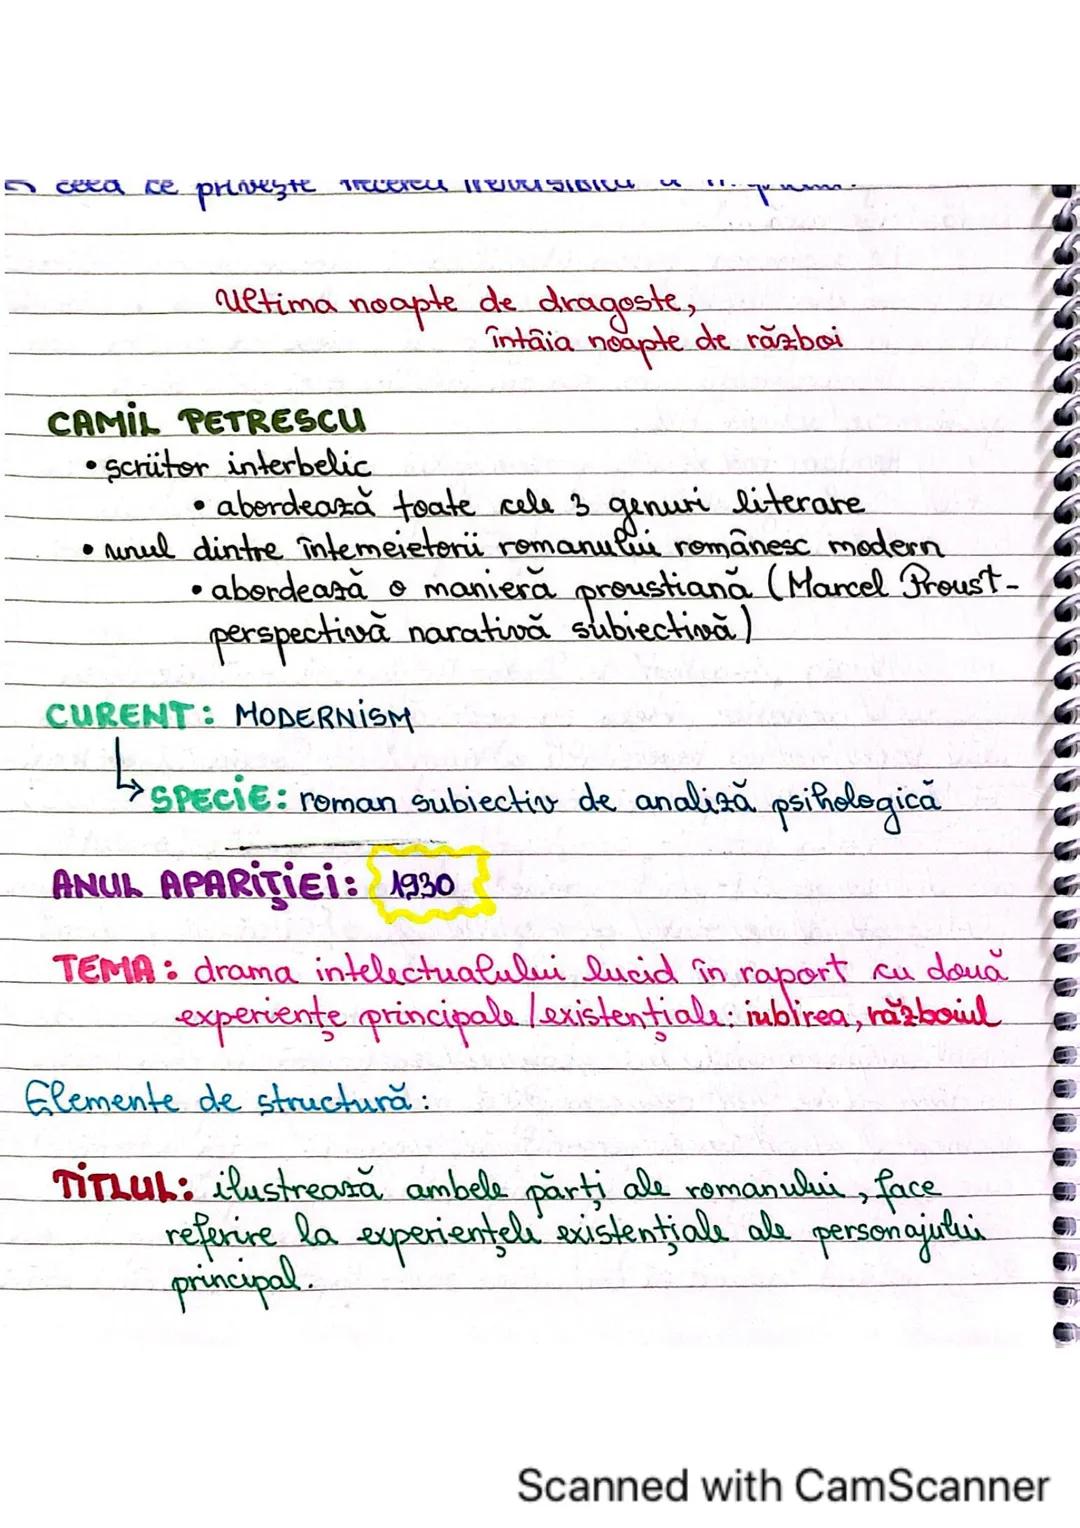 ceea ce privește trecerea ireversibilă a
Ultima noapte de dragoste,
întâia noapte de război
CAMIL PETRESCU
• scriitor interbelic
• abordează toate cele 3 genuri literare
• unul dintre întemeietorii romanului românesc modern
• abordează o manieră proustiană (Marcel Proust-
perspectivă narativă subiectivă)
CURENT: MODERNISM
SPECIE: roman subiectiv de analiză psihologică
ANUL APARIȚIEI: 1930
TEMA: drama intelectualului lucid în raport cu două
experiențe principale/existențiale: iubirea, războiul
Elemente de structură:
TITLUL: ilustrează ambele părți ale romanului, face
referire la experiențele existențiale ale personajului
principal.
Scanned with CamScanner